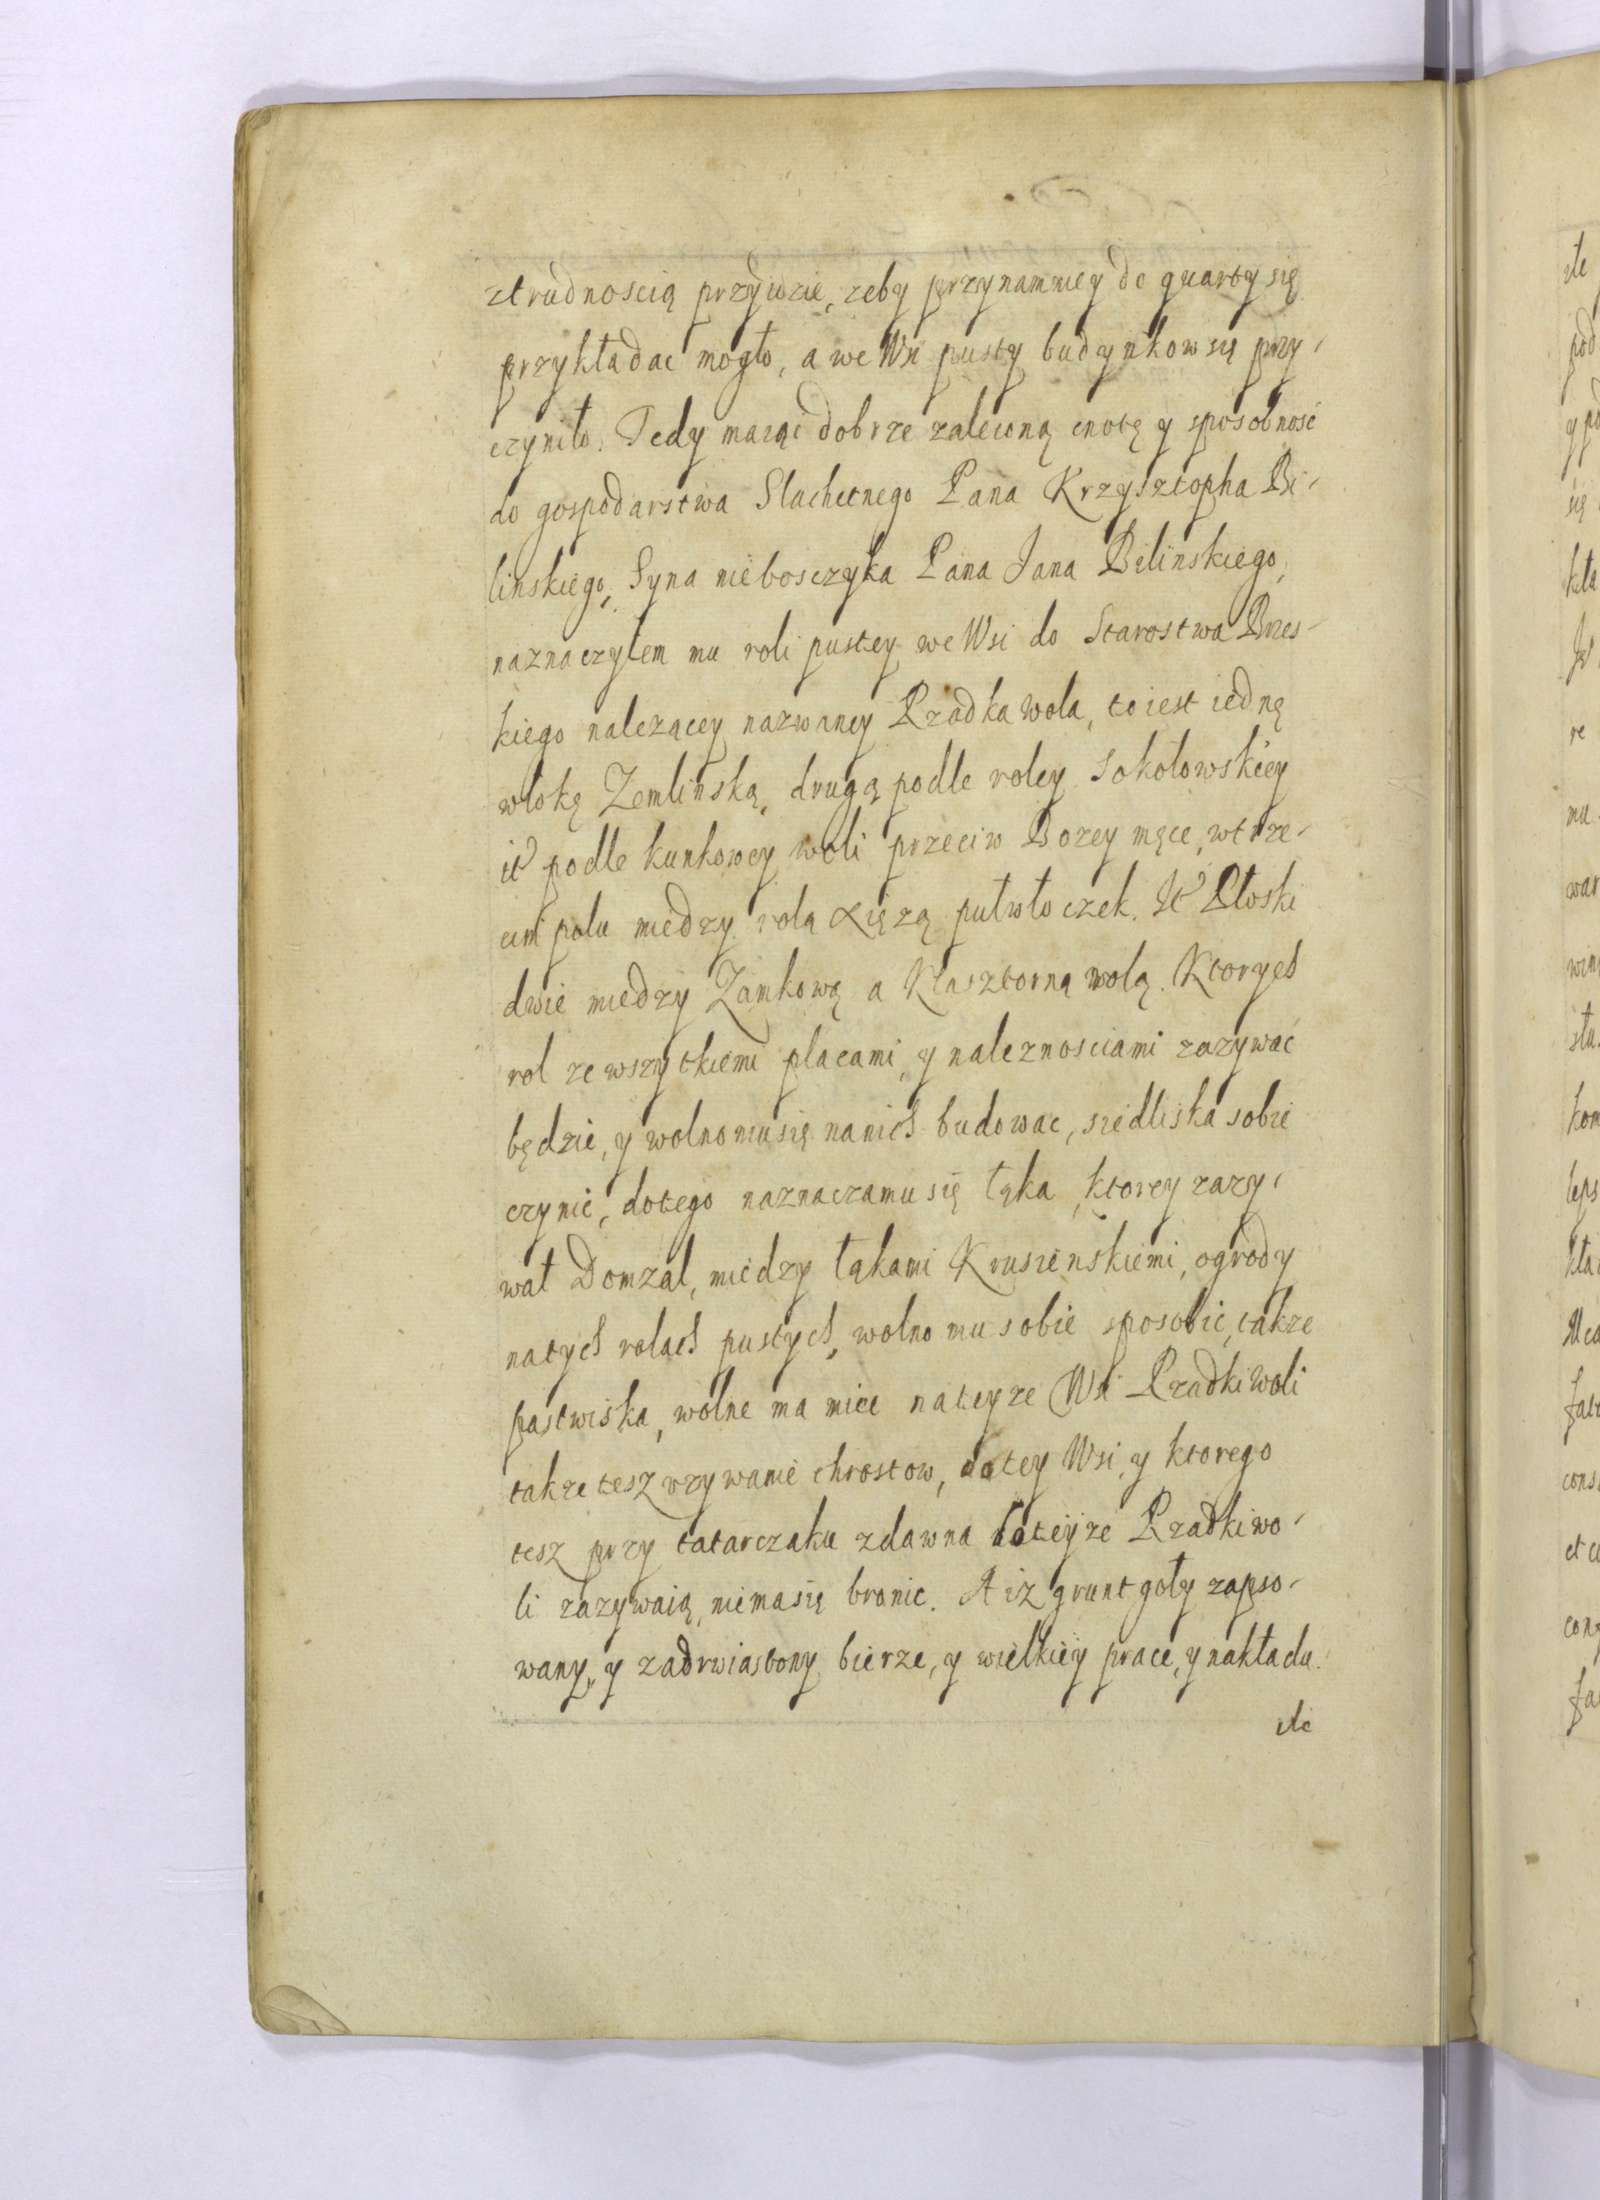 ztrudnoscią przyidzie, zeby przynamniey do quarty się
przykładac mogło, a we Wsi pusty budynkow się przy-
czyniło. Tedy maiąc dobrze zaleconą cnotę y sposobność
do gospodarstwa Slachetnego Pana Krzysztopha Bi-
linskiego, Syna nieboszczyka Pana Jana Bilinskiego,
naznaczyłem mu roli pustey we Wsi do Starostwa Brzes-
kiego nalezącey nazwaney Rzadka Wola, to iest iedną
włokę Zemlinską, drugą podle roley Sokołowskiey
podle kunkowey woli przeciw Bozey męce, wtrze-
cim polu miedzy rolą xięzą pułwłoczek. W Płoski
dwie miedzy Zamkową a Klasztorną rolą. Ktorych
rol ze wszytkiemi placami, y naleznosciami zazywać
będzie, y wolno mu się na nich budowac, siedliska sobie
czynić, do tego naznacza mu się łąka, ktorey zazy-
wał Domzal, miedzy łąkami Kruszenskiemi, ogrody
na tych rolach pustych, wolno mu sobie sposobić, takze
pastwiska, wolne ma miec na teyze Wsi Rzadki Woli
takze tesz vzywanie chrostow, do tey Wsi, y ktorego
tesz przy tatarczaku zdawna do teyze Rzadki wo-
li zazywaią, nie ma się bronic. A iz grunt goły zapso-
wany, y zadrwiastony bierze, y wielkiey prace, y nakładu